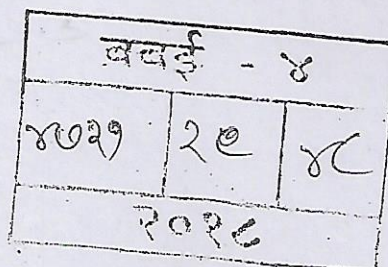 बबई - ४
४७२१ २९ ४८
२०१८